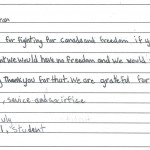 for fighting for canada and freedom if y
we would have no freedom and we would
Thank you for that. We are grateful for
, service and sacrifice
uly
, Student